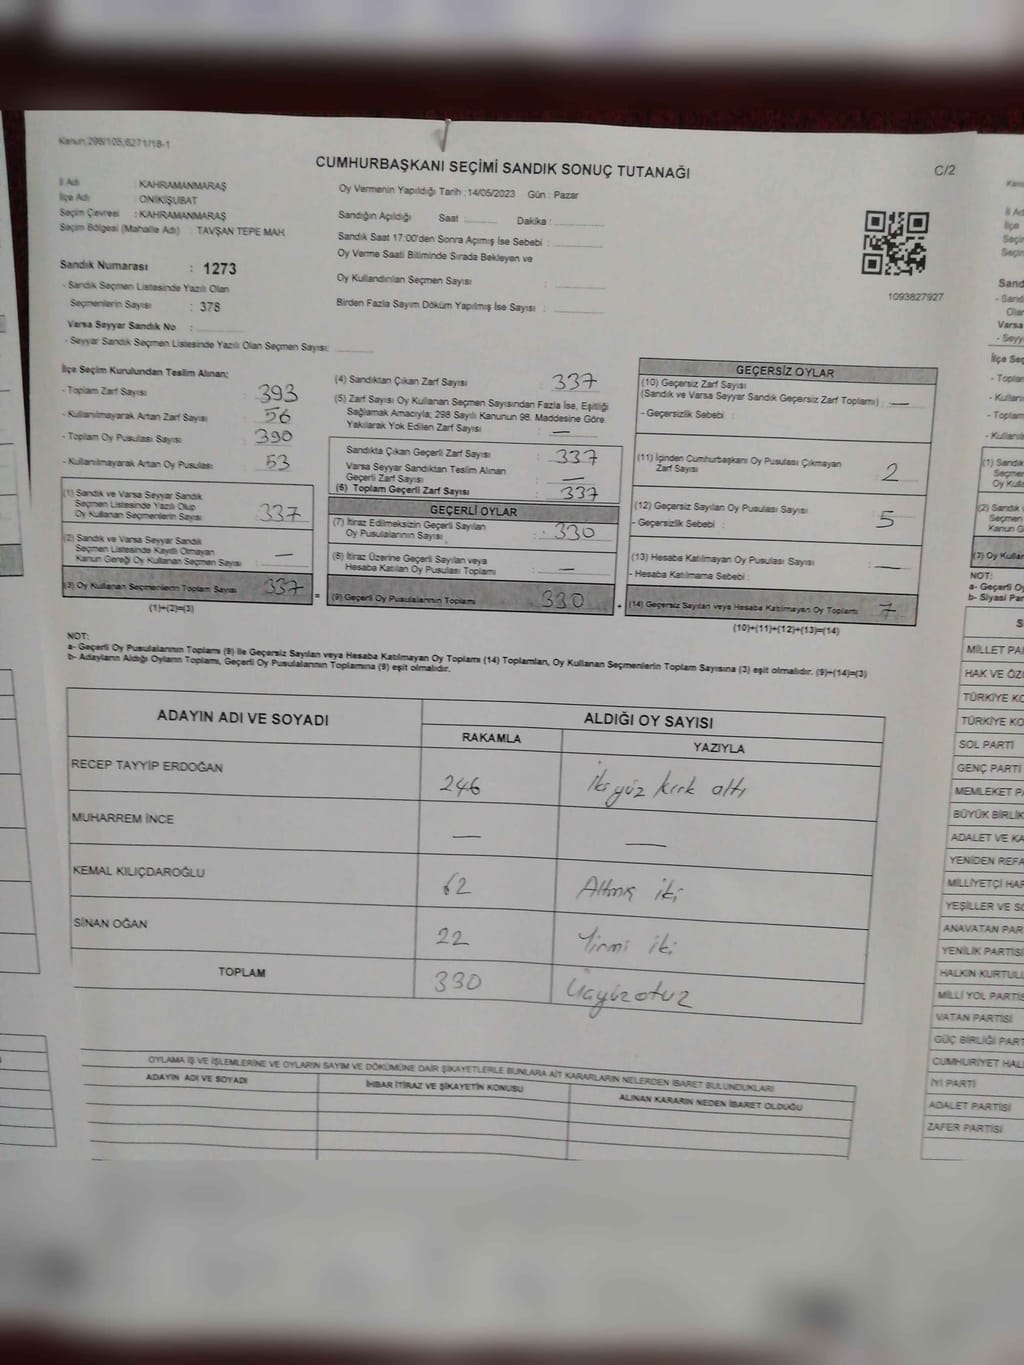 Kanun 298/105,6271/18-1
CUMHURBAŞKANI SEÇİMİ SANDIK SONUÇ TUTANAĞI
C/2
İl Adı : KAHRAMANMARAŞ
İlçe Adı : ONİKİŞUBAT
Seçim Çevresi : KAHRAMANMARAŞ
Seçim Bölgesi (Mahalle Adı) : TAVŞAN TEPE MAH.
Sandık Numarası : 1273
- Sandık Seçmen Listesinde Yazılı Olan
Seçmenlerin Sayısı : 378
Varsa Seyyar Sandık No :
- Seyyar Sandık Seçmen Listesinde Yazılı Olan Seçmen Sayısı:
Oy Vermenin Yapıldığı Tarih : 14/05/2023 Gün : Pazar
Sandığın Açıldığı Saat : Dakika :
Sandık Saat 17:00'den Sonra Açımış İse Sebebi :
Oy Verme Saati Bitiminde Sırada Bekleyen ve
Oy Kullandırılan Seçmen Sayısı :
Birden Fazla Sayım Döküm Yapılmış İse Sayısı :
1093827927
İlçe Seçim Kurulundan Teslim Alınan;
- Toplam Zarf Sayısı : 393
- Kullanılmayarak Artan Zarf Sayısı : 56
- Toplam Oy Pusulası Sayısı : 390
- Kullanılmayarak Artan Oy Pusulası : 53
(1) Sandık ve Varsa Seyyar Sandık
Seçmen Listesinde Yazılı Olup
Oy Kullanan Seçmenlerin Sayısı : 337
(2) Sandık ve Varsa Seyyar Sandık
Seçmen Listesinde Kayıtlı Olmayan
Kanun Gereği Oy Kullanan Seçmen Sayısı : —
(3) Oy Kullanan Seçmenlerin Toplam Sayısı 337
(1)+(2)=(3)
(4) Sandıktan Çıkan Zarf Sayısı : 337
(5) Zarf Sayısı Oy Kullanan Seçmen Sayısından Fazla İse, Eşitliği
Sağlamak Amacıyla; 298 Sayılı Kanunun 98. Maddesine Göre
Yakılarak Yok Edilen Zarf Sayısı : —
Sandıkta Çıkan Geçerli Zarf Sayısı : 337
Varsa Seyyar Sandıktan Teslim Alınan
Geçerli Zarf Sayısı : —
(6) Toplam Geçerli Zarf Sayısı : 337
GEÇERLİ OYLAR
(7) İtiraz Edilmeksizin Geçerli Sayılan
Oy Pusulalarının Sayısı : 330
(8) İtiraz Üzerine Geçerli Sayılan veya
Hesaba Katılan Oy Pusulası Toplamı : —
(9) Geçerli Oy Pusulalarının Toplamı 330
GEÇERSİZ OYLAR
(10) Geçersiz Zarf Sayısı
(Sandık ve Varsa Seyyar Sandık Geçersiz Zarf Toplamı) : —
- Geçersizlik Sebebi :
(11) İçinden Cumhurbaşkanı Oy Pusulası Çıkmayan
Zarf Sayısı : 2
(12) Geçersiz Sayılan Oy Pusulası Sayısı : 5
- Geçersizlik Sebebi :
(13) Hesaba Katılmayan Oy Pusulası Sayısı : —
- Hesaba Katılmama Sebebi :
(14) Geçersiz Sayılan veya Hesaba Katılmayan Oy Toplamı 7
(10)+(11)+(12)+(13)=(14)
NOT:
a- Geçerli Oy Pusulalarının Toplamı (9) ile Geçersiz Sayılan veya Hesaba Katılmayan Oy Toplamı (14) Toplamları, Oy Kullanan Seçmenlerin Toplam Sayısına (3) eşit olmalıdır. (9)+(14)=(3)
b- Adayların Aldığı Oyların Toplamı, Geçerli Oy Pusulalarının Toplamına (9) eşit olmalıdır.
ADAYIN ADI VE SOYADI
ALDIĞI OY SAYISI
RAKAMLA YAZIYLA
RECEP TAYYİP ERDOĞAN 246 İki yüz kırk altı
MUHARREM İNCE — —
KEMAL KILIÇDAROĞLU 62 Altmış iki
SİNAN OĞAN 22 Yirmi iki
TOPLAM 330 Üçyüzotuz
OYLAMA İŞ VE İŞLEMLERİNE VE OYLARIN SAYIM VE DÖKÜMÜNE DAİR ŞİKAYETLERLE BUNLARA AİT KARARLARIN NELERDEN İBARET BULUNDUKLARI
ADAYIN ADI VE SOYADI İHBAR İTİRAZ VE ŞİKAYETİN KONUSU ALINAN KARARIN NEDEN İBARET OLDUĞU
NOT:
a- Geçerli Oy
b- Siyasi Par
MİLLET PA
HAK VE ÖZ
TÜRKİYE KO
TÜRKİYE KO
SOL PARTİ
GENÇ PARTİ
MEMLEKET P
BÜYÜK BİRLİK
ADALET VE KA
YENİDEN REFA
MİLLİYETÇİ HAR
YEŞİLLER VE SO
ANAVATAN PAR
YENİLİK PARTİSİ
HALKIN KURTULU
MİLLİ YOL PARTİS
VATAN PARTİSİ
GÜÇ BİRLİĞİ PART
CUMHURİYET HAL
İYİ PARTİ
ADALET PARTİSİ
ZAFER PARTİSİ